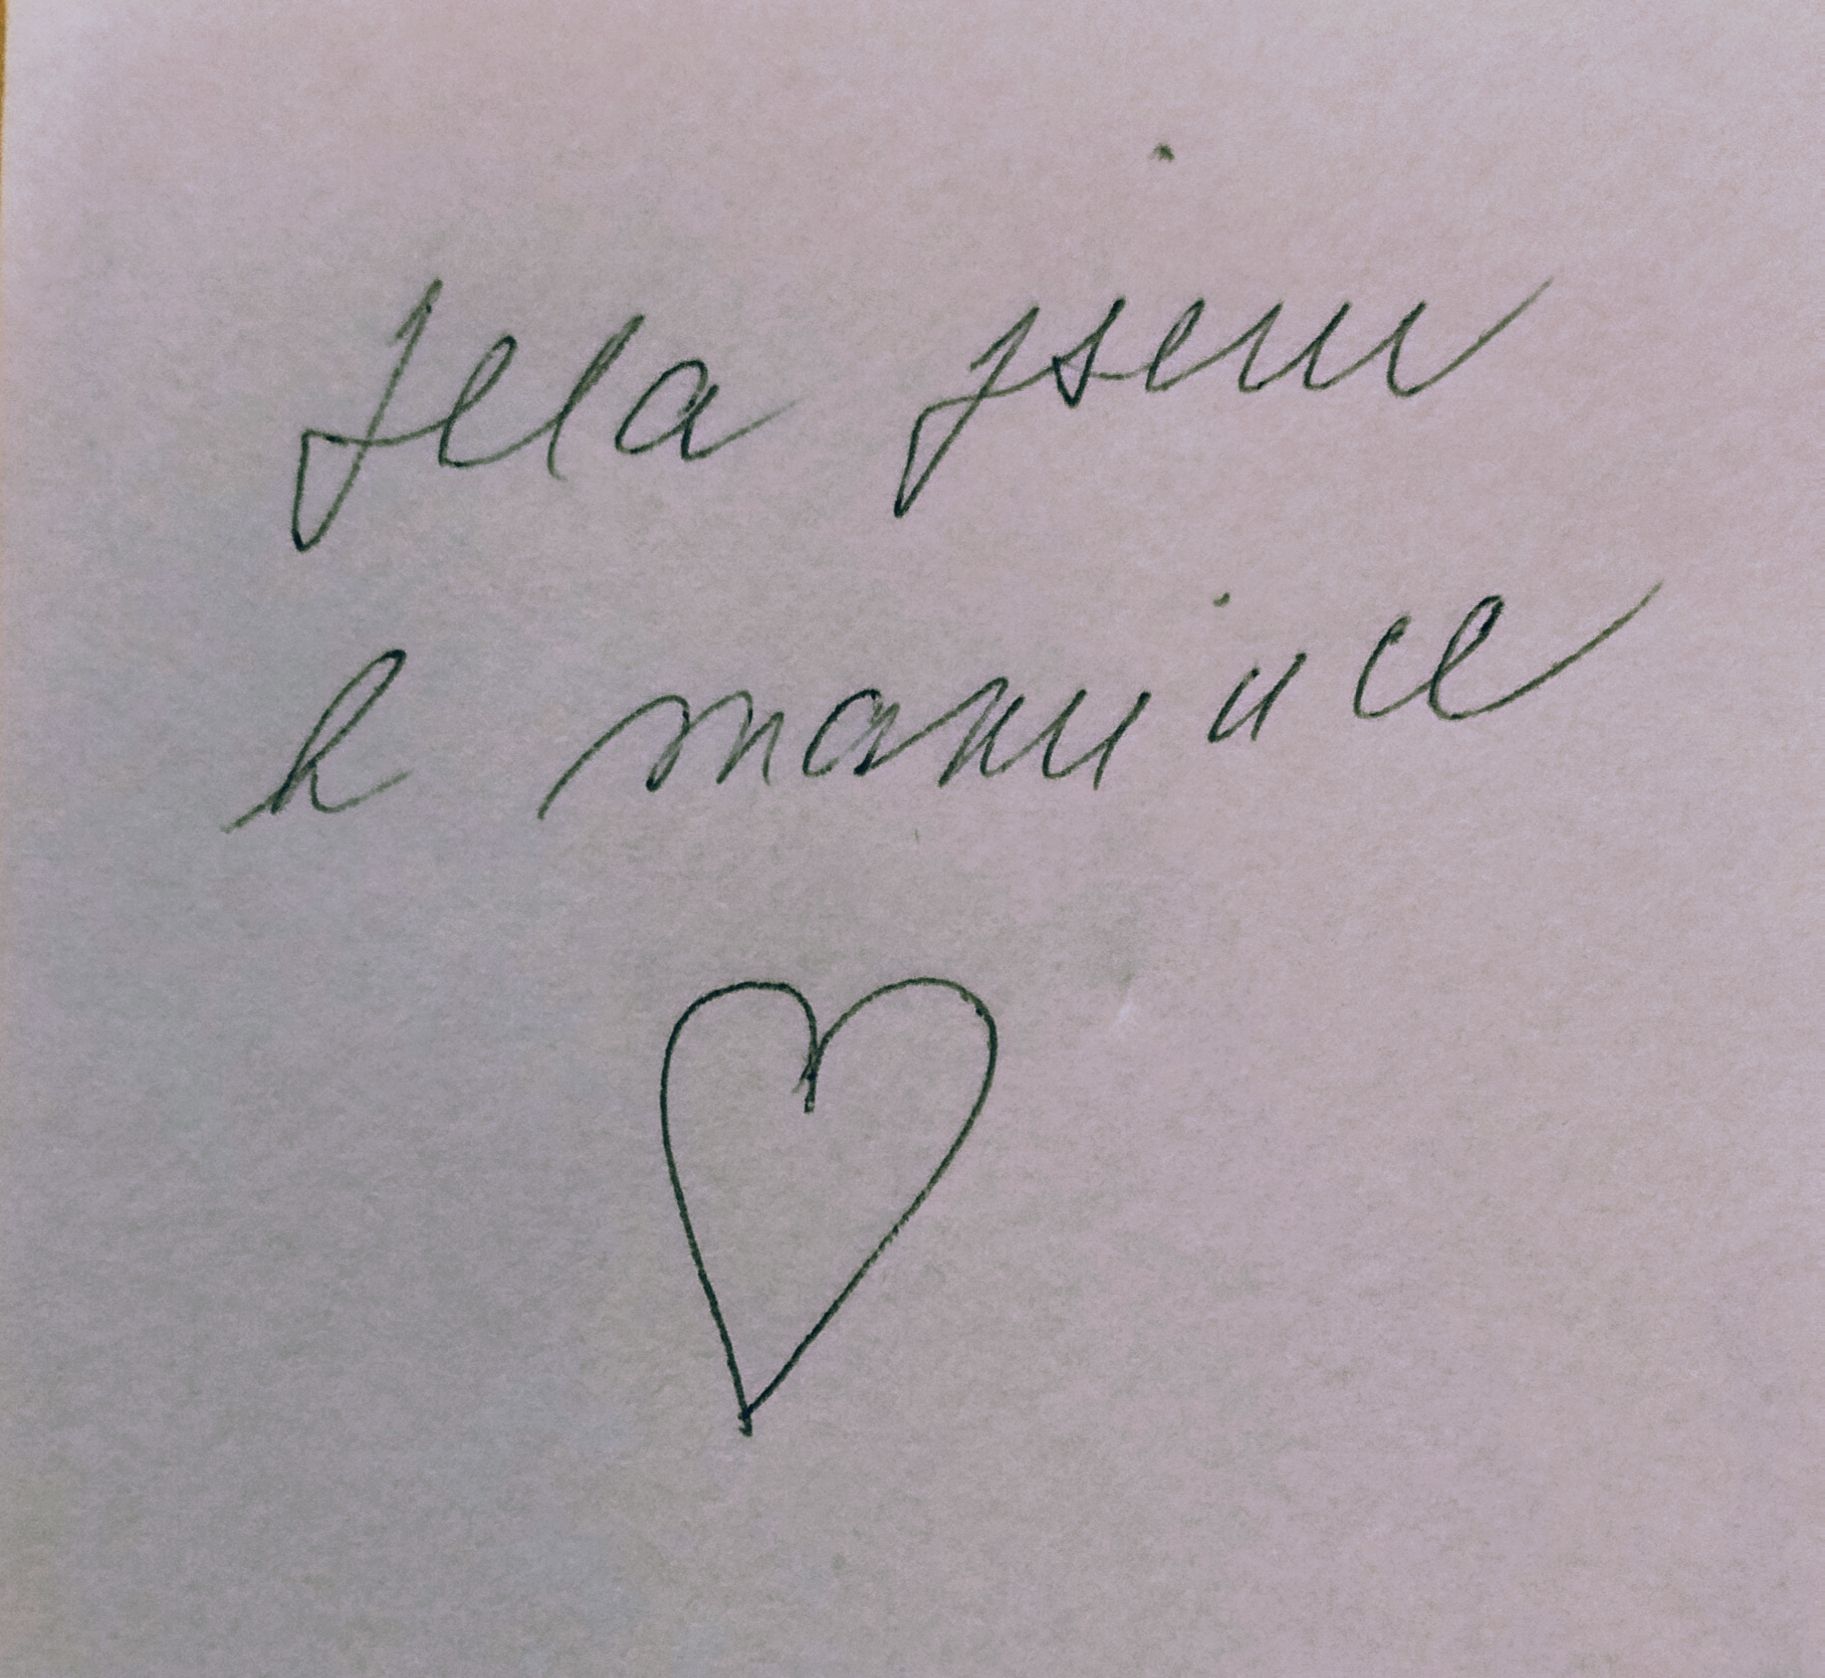 Jela jsem
k mamince